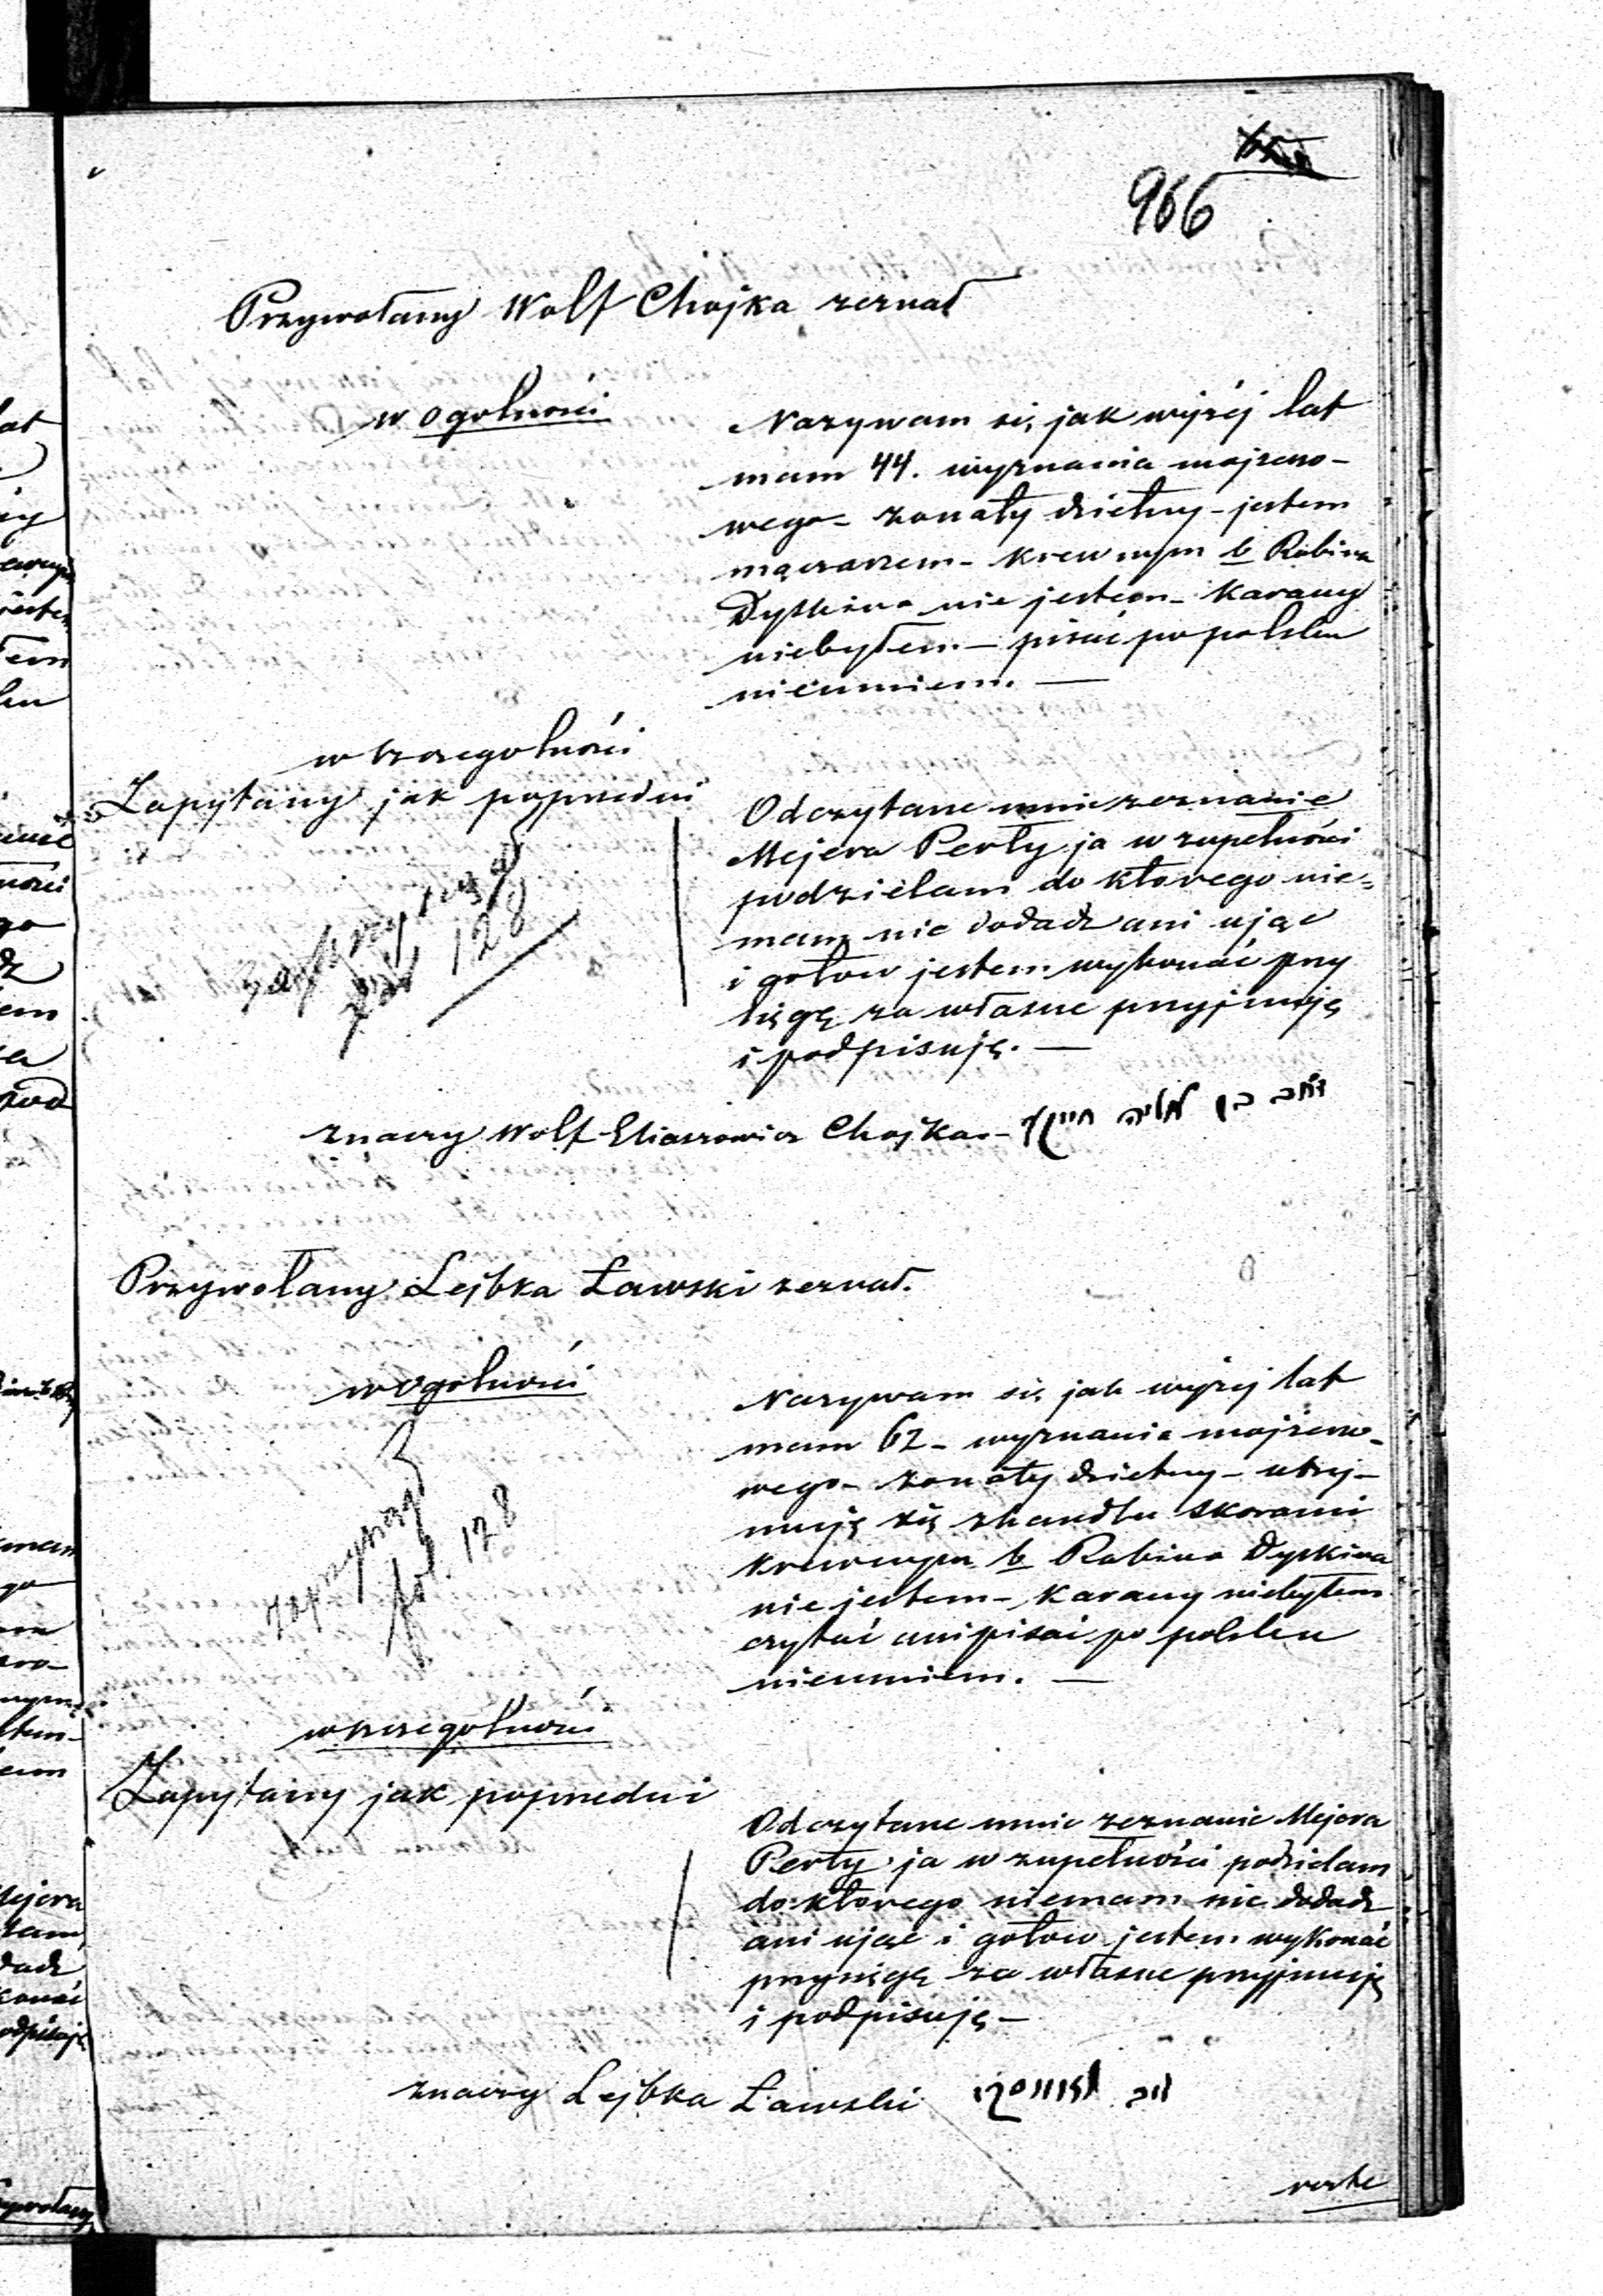 966
Przywołany Wolf Chojka zeznał
w ogolności
Nazywam się jak wyżej lat
mam 44. wyznania mojżeszo-
wego - żonaty dzietny - jestem
mączarzem - krewnym b Rabina
Dyskina nie jestem - Karany
niebyłem. — pisać po polsku
nieumiem. —
w szczegolności
Zapytany jak poprzedni
zaprzysiągł
fol 128
Odczytane mnie zeznanie
Mejera Perły ja w zupełności
podzielam do ktorego nie=
mam nic dodadz ani ując
i gotow jestem wykonać przy
sięgę za własne przyjmuję
i podpisuję. —
znaczy Wolf Eliaszowicz Chojka. -
וואב בן אליה חייקע
Przywołany Lejbka Ławski zeznał.
w ogolności
Nazywam się jak wyżej lat
mam 62 - wyznania mojżeszo-
wego - żonaty dzietny - utrzy-
muję się z handlu skorami
krewnym b Rabina Dyskina
nie jestem - Karany niebyłem
czytać ani pisać po polsku
nieumiem. —
fol. 128
w szczegolności
Zapytany jak poprzedni
Odczytane mnie zeznanie Mejera
Perły ja w zupełności podzielam
do ktorego niemam nic dodadz
ani ując i gotow jestem wykonać
przysięgę za własne przyjmuję
i podpisuję -
znaczy Lejbka Ławski
verte